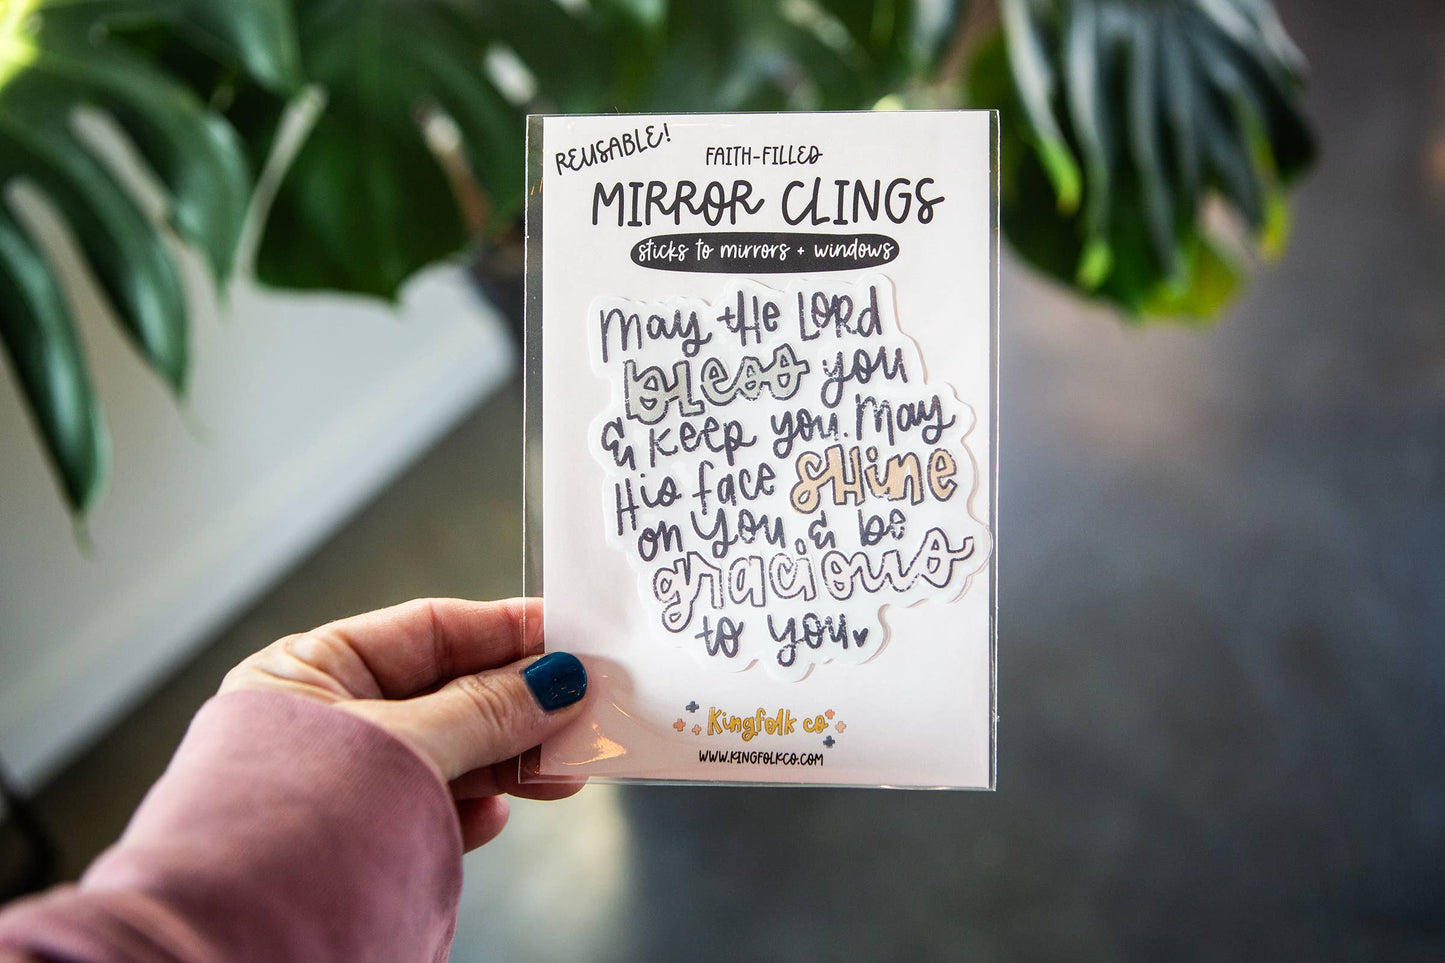 REUSABLE!
FAITH-FILLED
MIRROR CLINGS
sticks to mirrors + windows
May the LORD
bless you
& keep you. May
His face SHINE
on you & be
gracious
to you
Kingfolk co
WWW.KINGFOLKCO.COM